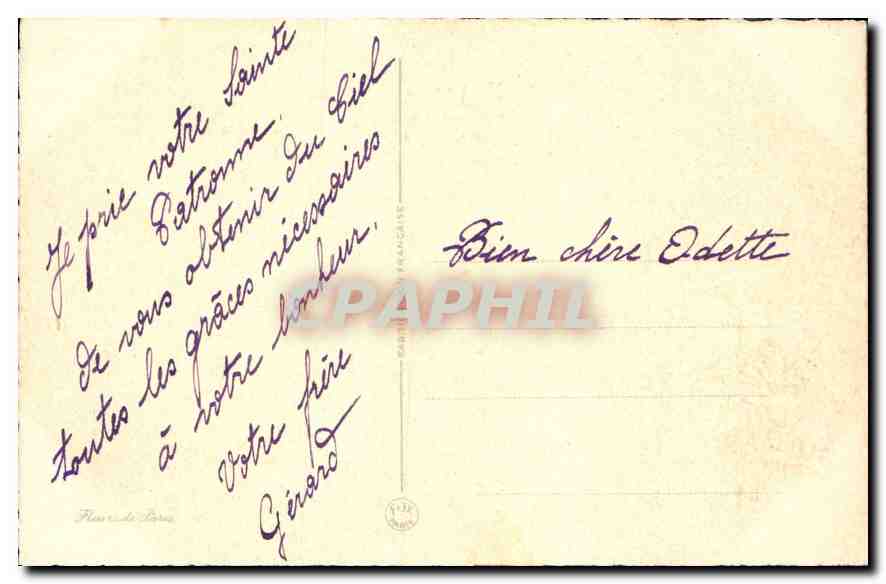 Je prie votre Sainte
Patronne,
de vous obtenir du Ciel
toutes les grâces nécessaires
à votre bonheur,
Votre frère
Gérard
Bien chère Odette
CPAPHIL
FRANÇAISE
Fleurs de Paris
PARIS